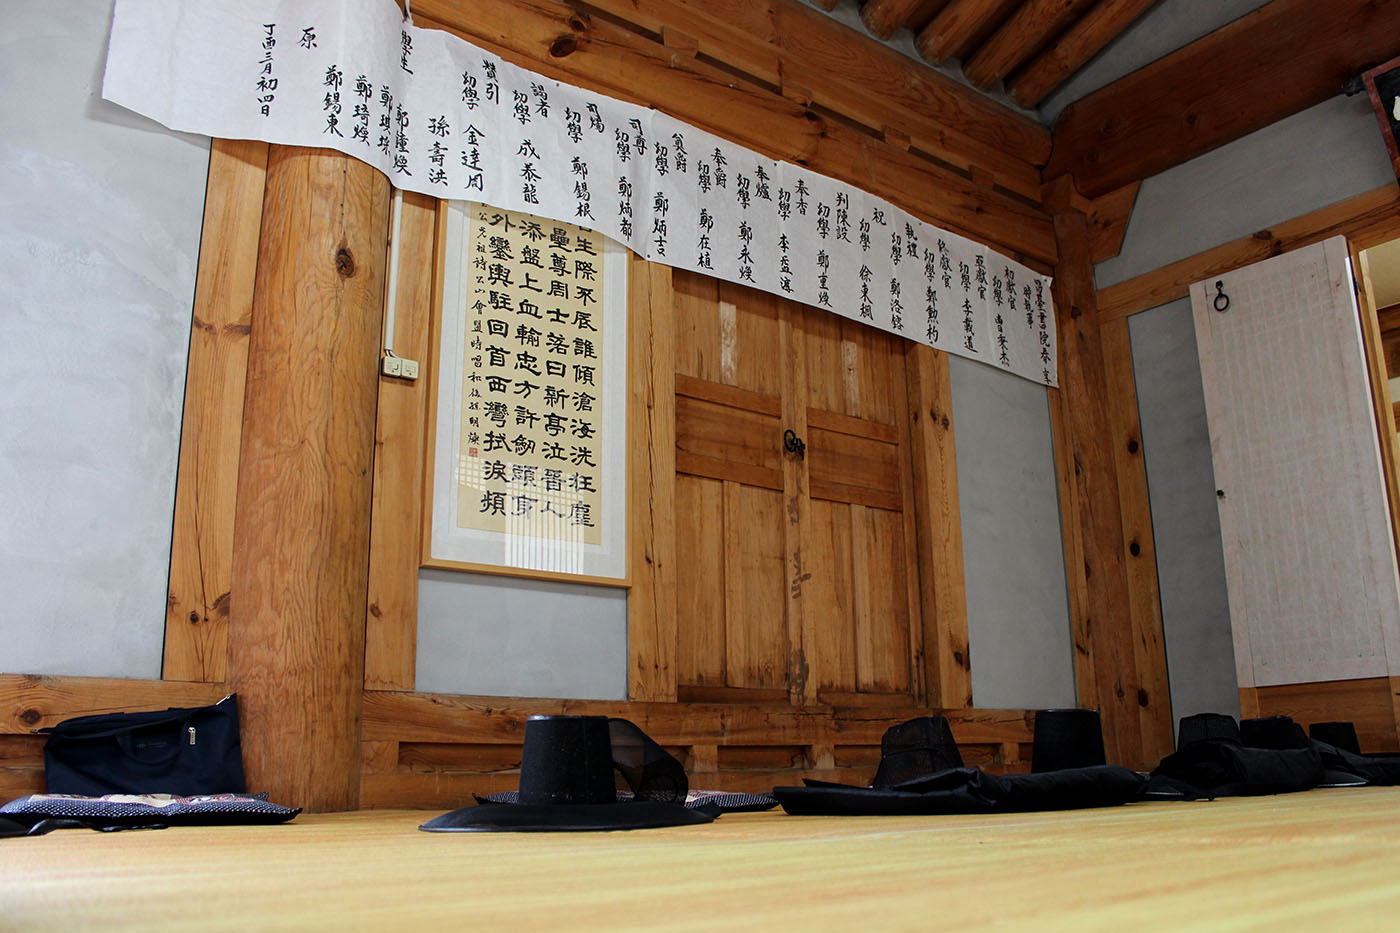 臺書院春享
時執事
初獻官
幼學 曺秉杰
亞獻官
幼學 李載道
終獻官
幼學 鄭勳杓
執禮
幼學 鄭洛鎔
祝
幼學 徐東
判陳設
幼學 鄭重煥
奉香
幼學 李孟
奉爐
幼學 鄭永煥
奉爵
幼學 鄭在植
奠爵
幼學 鄭炳吉
司尊
幼學 鄭炳都
司燭
幼學 鄭錫根
謁者
幼學 成泰龍
贊引
幼學 金達周
孫壽洪
學生
鄭 煥
鄭琪埰
鄭琦煥
鄭錫東
原
丁酉三月初四日
生際不辰誰傾滄海洗狂塵
壘尊周士落日新亭泣晉人
添盤上血輸忠方許劒頭身
外鑾輿駐回首西灣拭淚頻
公先祖詩公山會盟時唱和 後孫明煥